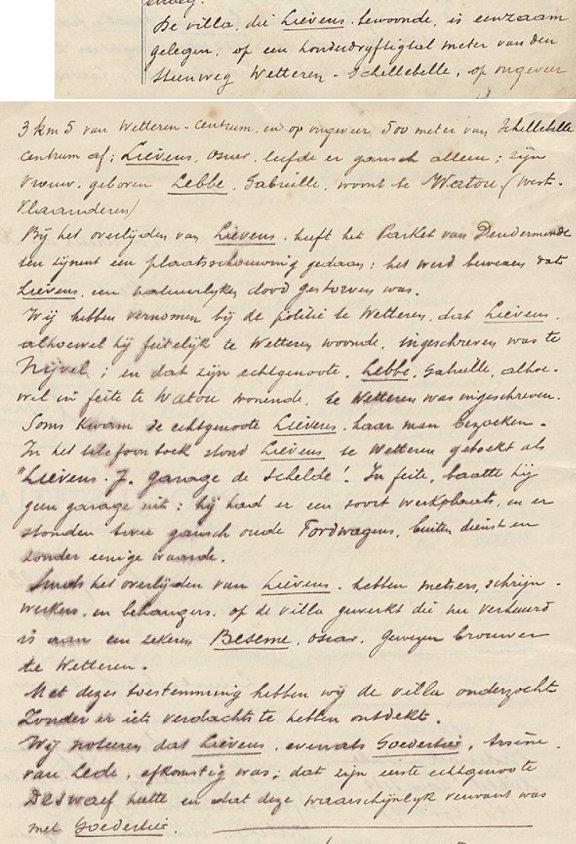 De villa, die Lievens bewoonde, is eenzaam
gelegen, op een honderdvyftigtal meter van den
steenweg Wetteren - Schellebelle, op ongeveer
3 km 5 van Wetteren - Centrum, en op ongeveer 500 meter van Schellebelle
centrum af; Lievens, Oscar, leefde er gansch alleen; zijn
vrouw, geboren Lebbe, Gabrielle, woont te Watou. (West-
Vlaanderen)
Bij het overlijden van Lievens, heeft het Parket van Dendermonde
ten zijnent een plaatsschouwing gedaan; het werd bewezen dat
Lievens, een natuurlijken dood gestorven was.
Wij hebben vernomen bij de politie te Wetteren, dat Lievens,
alhoewel hij feitelijk te Wetteren woonde, ingeschreven was te
Nijvel; en dat zijn echtgenoote, Lebbe, Gabrielle, alhoe-
wel in feite te Watou wonende, te Wetteren was ingeschreven.
Soms kwam de echtgenoote Lievens, haar man bezoeken.
In het telefoonboek stond Lievens te Wetteren geboekt als
"Lievens. J. garage de Schelde". In feite, baatte hij
geen garage uit; hij had er een soort werkplaats, en er
stonden twee gansch oude Fordwagens, buiten dienst en
zonder eenige waarde.
Sinds het overlijden van Lievens, hebben metsers, schrijn-
werkers, en behangers, op de villa gewerkt die nu verhuurd
is aan een zekeren Beseme, Oscar, gewezen brouwer
te Wetteren.
Met dezes toestemming hebben wij de villa onderzocht
zonder er iets verdachts te hebben ontdekt.
Wij noteeren dat Lievens, evenals Goedertier, Arsène,
van Lede, afkomstig was; dat zijn eerste echtgenoote
De Swaef heette en dat deze waarschijnlijk verwant was
met Goedertier.